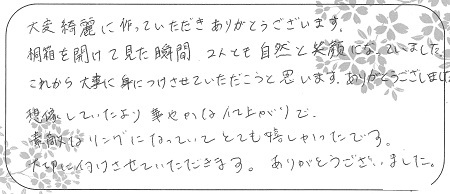 大変綺麗に作っていただきありがとうございます。
桐箱を開けて見た瞬間、2人とも自然と笑顔になっていました。
これから大事に身につけさせていただこうと思います。ありがとうございました
想像していたより華やかな仕上がりで、
素敵なリングになっていてとても嬉しかったです。
大切に付けさせていただきます。ありがとうございました。